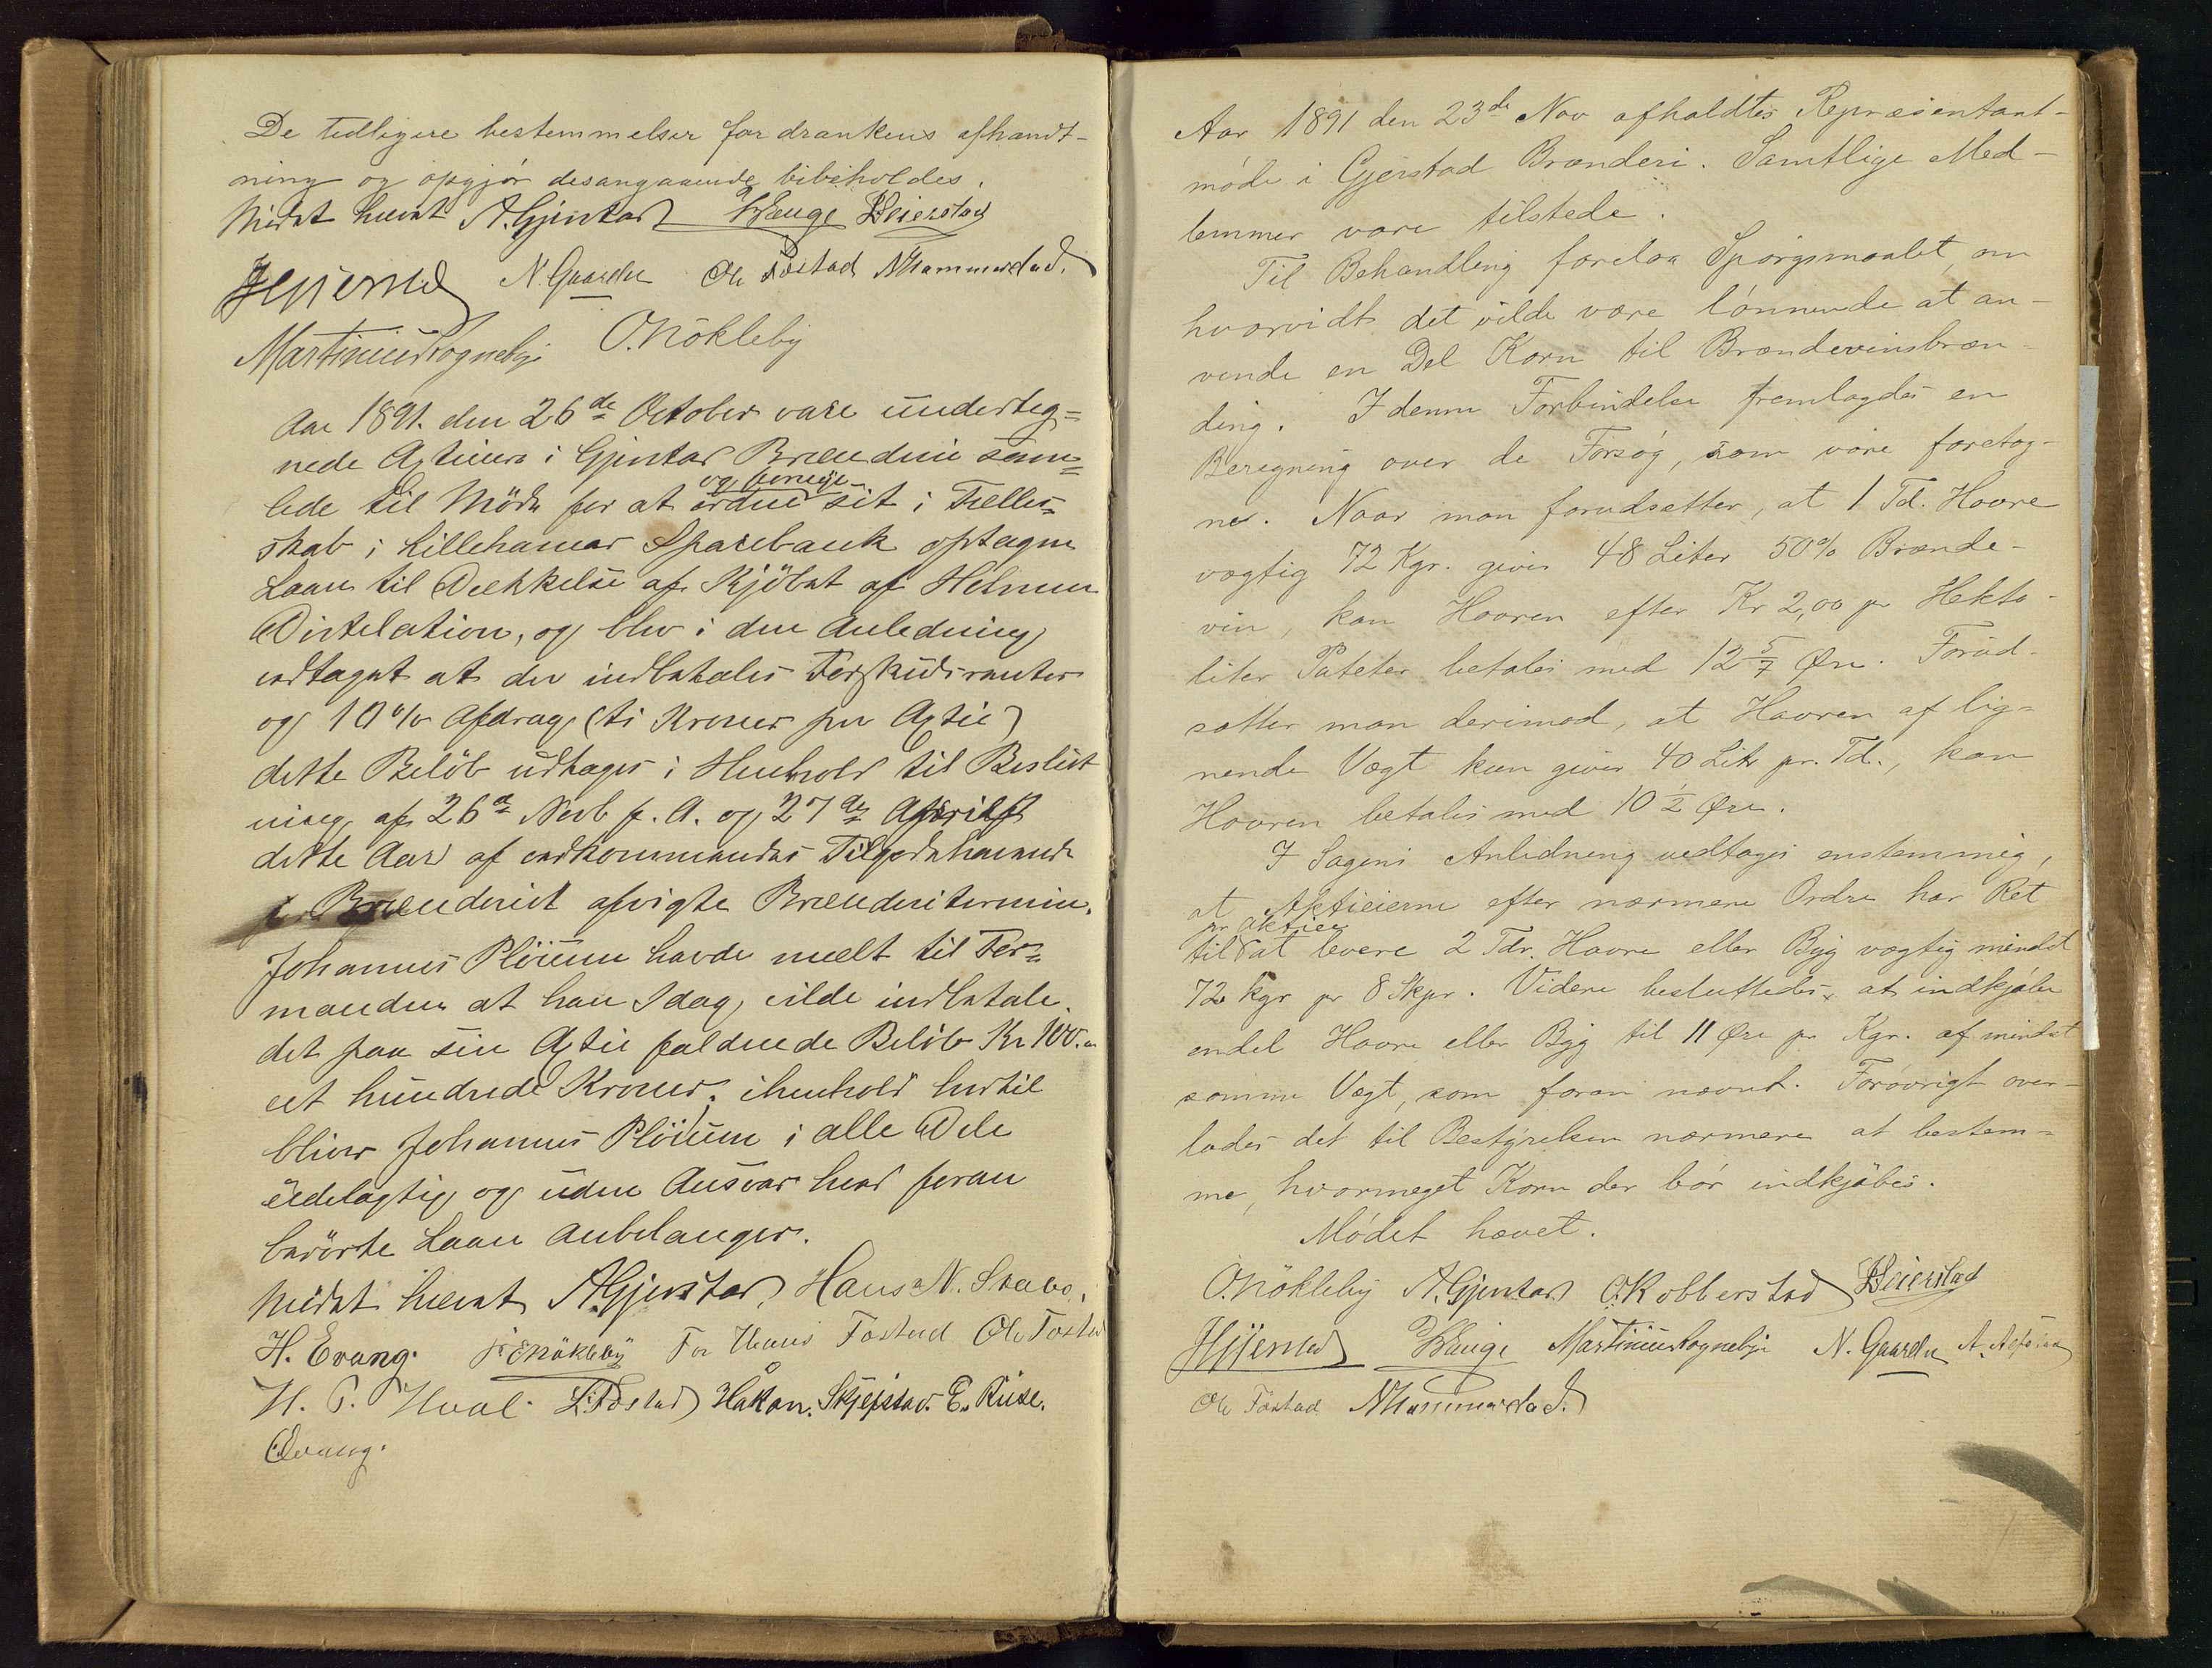 De tidligere bestemmelser for drankens afhændt-
ning og opgjør desangaaende bibeholdes.
Mødet hævet A. Gjerstad Hauge Beierstad
N. Gaarder Ole Fostad N Hammerstad.
Martinius Rognebye O. Nökleby
Aar 1891. den 26de October vare underteg=
nede Actieeiere i Gjerstad Brænderie sam=
lede til Möde for at ordne og forneye sit i Fælles=
skab i Lillehamar Sparebank optagne
Laan til Dækkelse af Kjöbet af Helmen
Distelation, og blev i den Anledning
vedtaget at der indbetales Forskudsrenter
og 10% Afdrag (ti Kroner per Actie)
dette Belöb udtages i Henhold til Beslut
ning af 26de Novb f. A. og 27de April
dette Aar af vedkommendes Tilgodehavende
i Brænderiet afvigte Brænderitermin.
Johannes Plöuum havde mælt til For=
manden at han Idag vilde indbetale
det paa sin Actie faldende Belöb Kr 100.
et hundrede Kroner; ihenhold hertil
bliver Johannes Plöuum i alle Dele
udelagtig og uden Ansvar hvad foran
berörte Laan anbelanger.
Mödet hævet A Gjerstad, Hans N. Skabo,
H. Evang. Nökleby For Hans Fostad Ole Fostad
H. P. Hval. L. Fostad Håkon. Skjefstad. E. Ruse.
Evang.
Aar 1891 den 23de Nov afholdtes Repræsentant-
møde i Gjerstad Brænderi. Samtlige Med-
lemmer vare tilstede.
Til Behandling forelaa Spörgsmaalet, om
hvorvidt det vilde være lönnende at an-
vende en Del Korn til Brændevinsbræn-
ding. I denne Forbindelse fremlagdes en
Beregning over de Forsög, som vare foretag-
ne. Naar man forudsetter, at 1 Td. Havre
vægtig 72 Kgr. giver 48 Liter 50% Brænde-
vin, kan Havren efter Kr 2,00 pr Hekto-
liter Poteter betales med 12 5/7 Øre. Forud-
sætter man derimod, at Havren af lig=
nende Vægt kun giver 40 Liter pr. Td., kan
Havren betales med 10 1/2 Øre.
I Sagens Anledning vedtages enstemmig,
at Aktieeierne efter nærmere Ordre har Ret
til pr aktie at levere 2 Tdr. Havre eller Byg vægtig mindst
72 kgr pr 8 Skpr. Videre besluttedes, at indkjøbe
endel Havre eller Byg til 11 Øre pr Kgr. af mindst
samme Vægt, som foran nævnt. Forövrigt over-
lades det til Bestyrelsen nærmere at bestem=
me, hvormeget Korn der bör indkjöbes.
Mödet hævet.
O. Nökleby A. Gjerstad O. Kobberstad Beierstad
Hauge Martinius Rognebye N. Gaarder
Ole Fostad N Hammerstad.